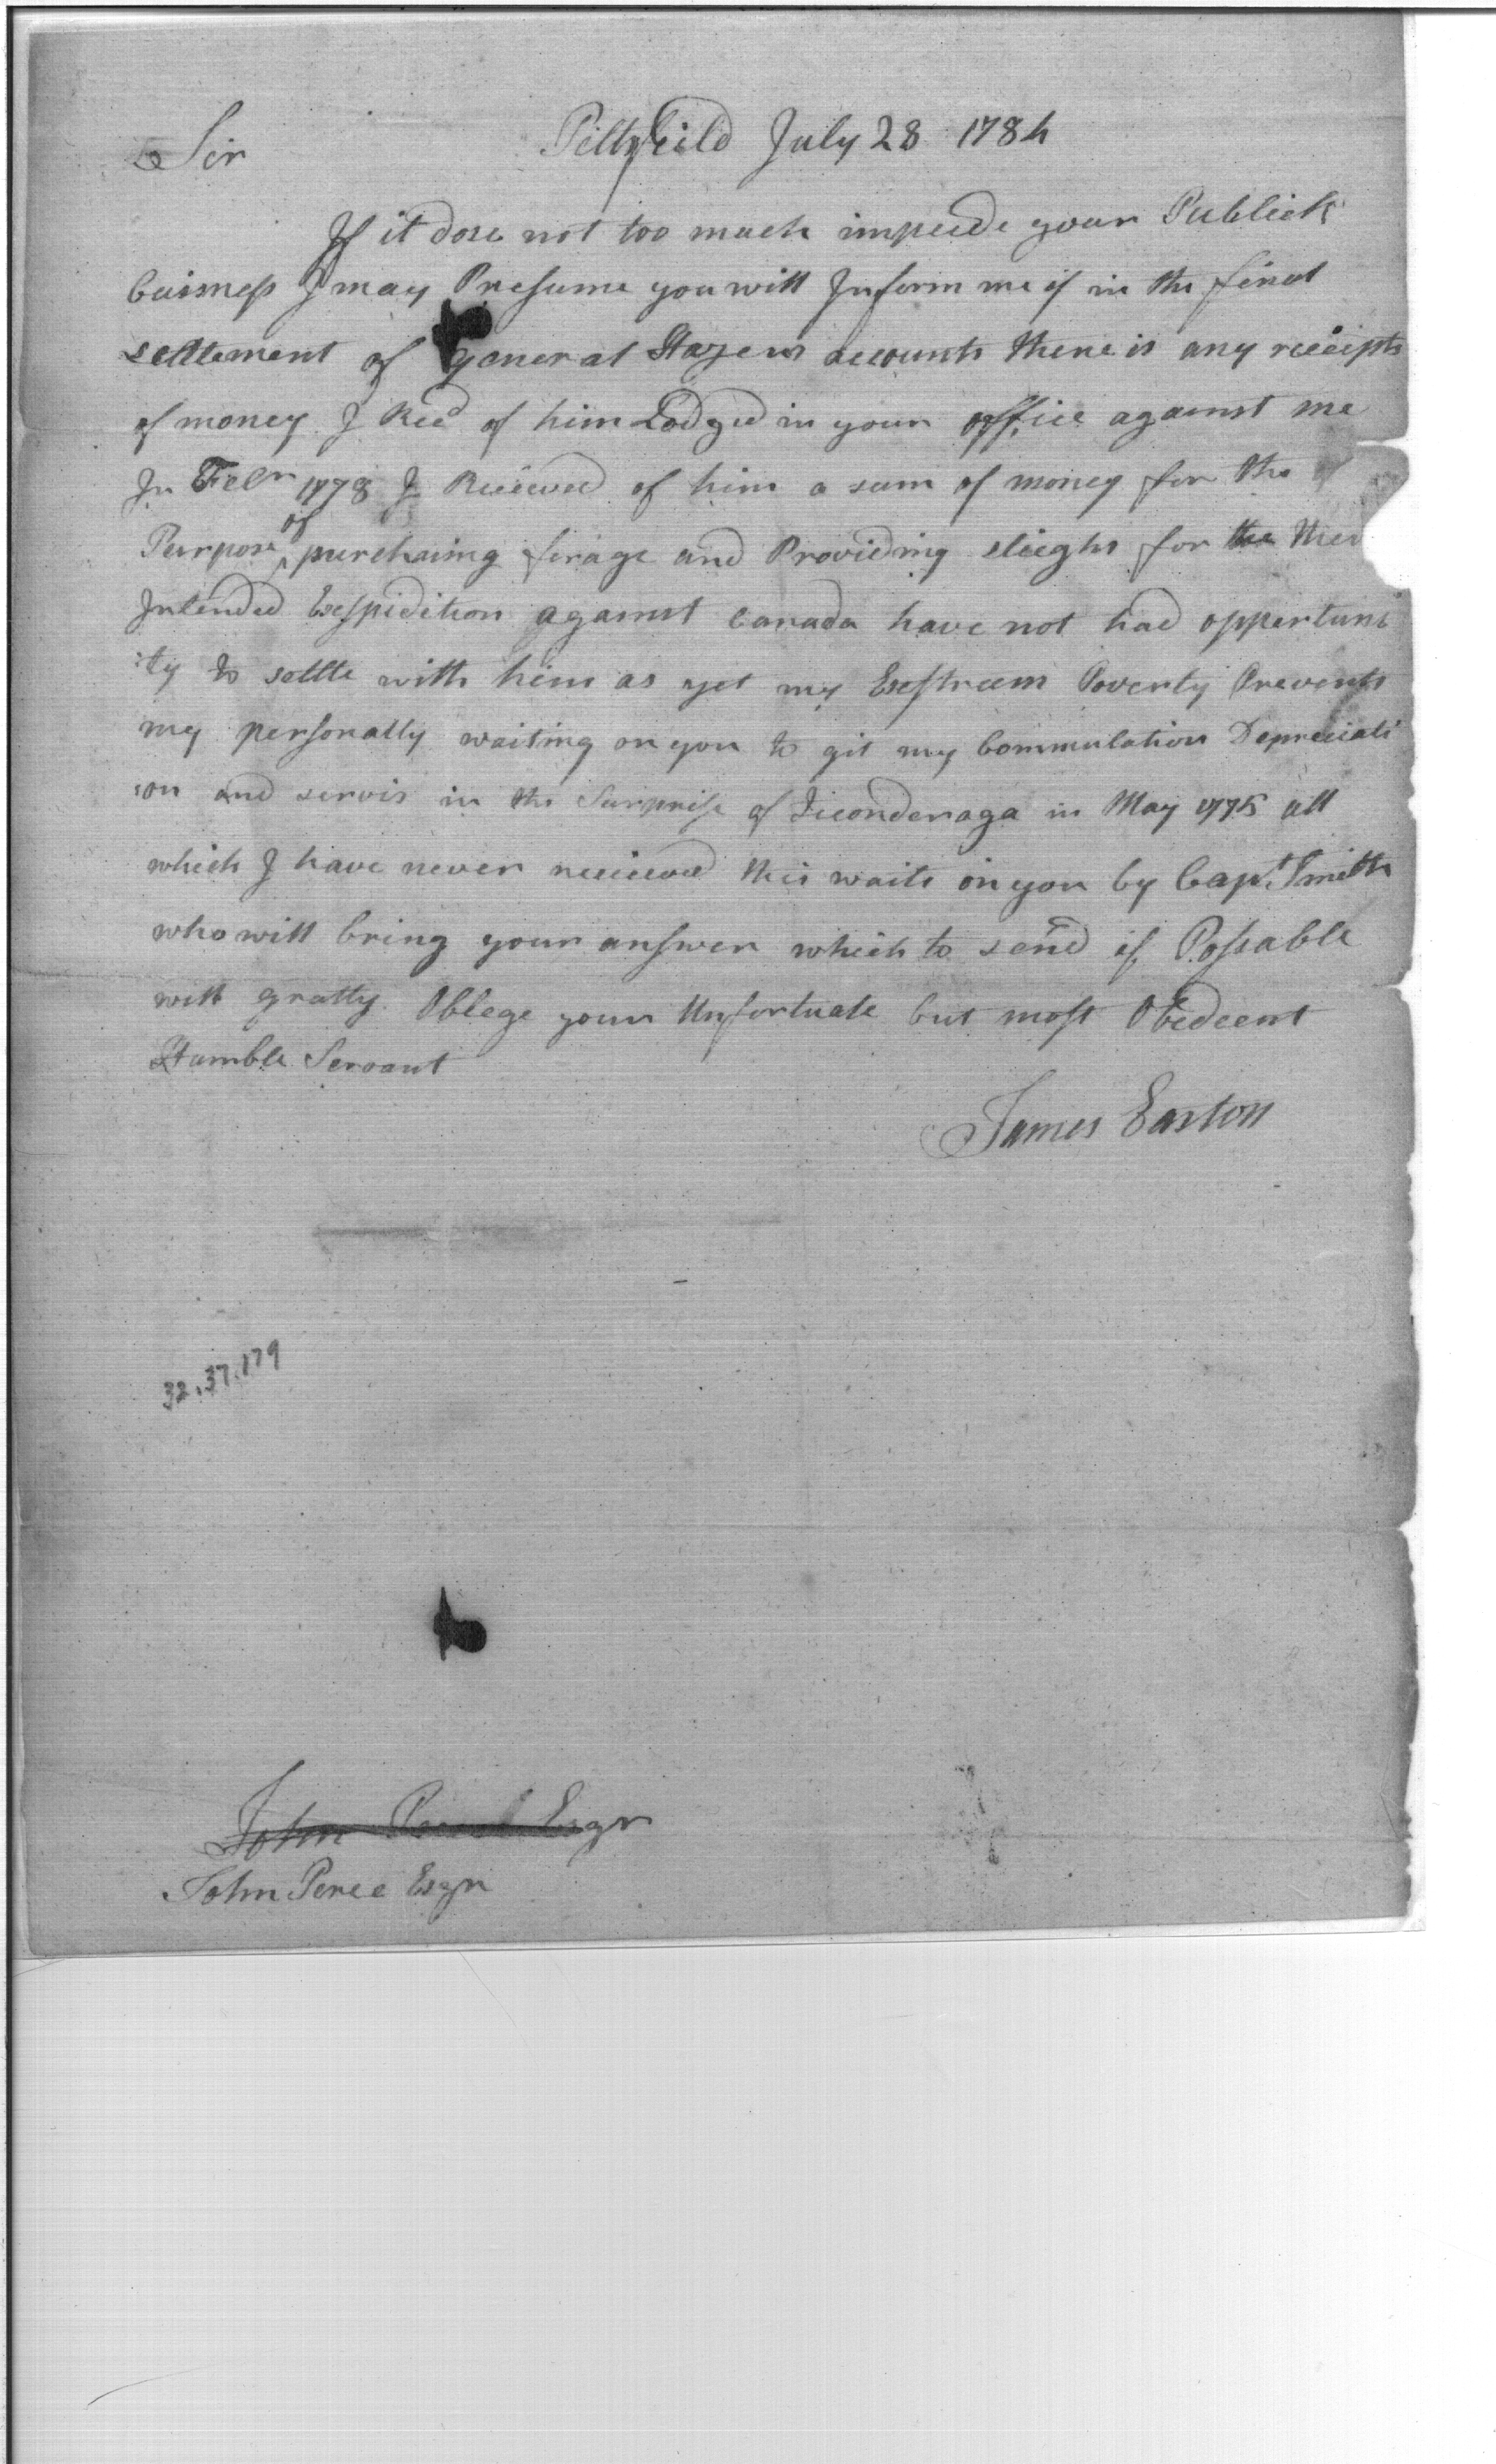 Sir
Pittsfield July 28 1784
If it dose not too much impeede your Publick
buisness I may Presume you will Inform me if in the final
settlement of General Hazens accounts there is any receipts
of money I Recd of him Lodged in your office against me
In Febr 1778 I Received of him a sum of money for the
Purpose of purchaing forage and Providing sleeghs for the then
Intended Exspidition against Canada have not had oppertuni
ty to settle with him as yet my Exstreem Poverty Prevents
my personally waiting on you to git my Commutation Depreciati
on and servis in the Surprise of Ticonderaga in May 1775 all
which I have never receieved this waits on you by Capt Smith
who will bring your answer which to send if Possable
will gratly Oblege your Unfortuate but most Obedeent
Humble Servant
James Easton
32.37.179
John Esqr
John Perce Esqr